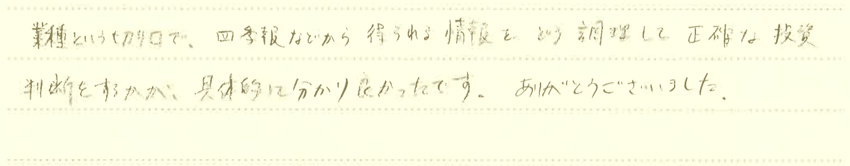 業種という切り口で、四季報などから得られる情報をどう調理して正確な投資
判断をするかが、具体的に分かり良かったです。ありがとうございました。